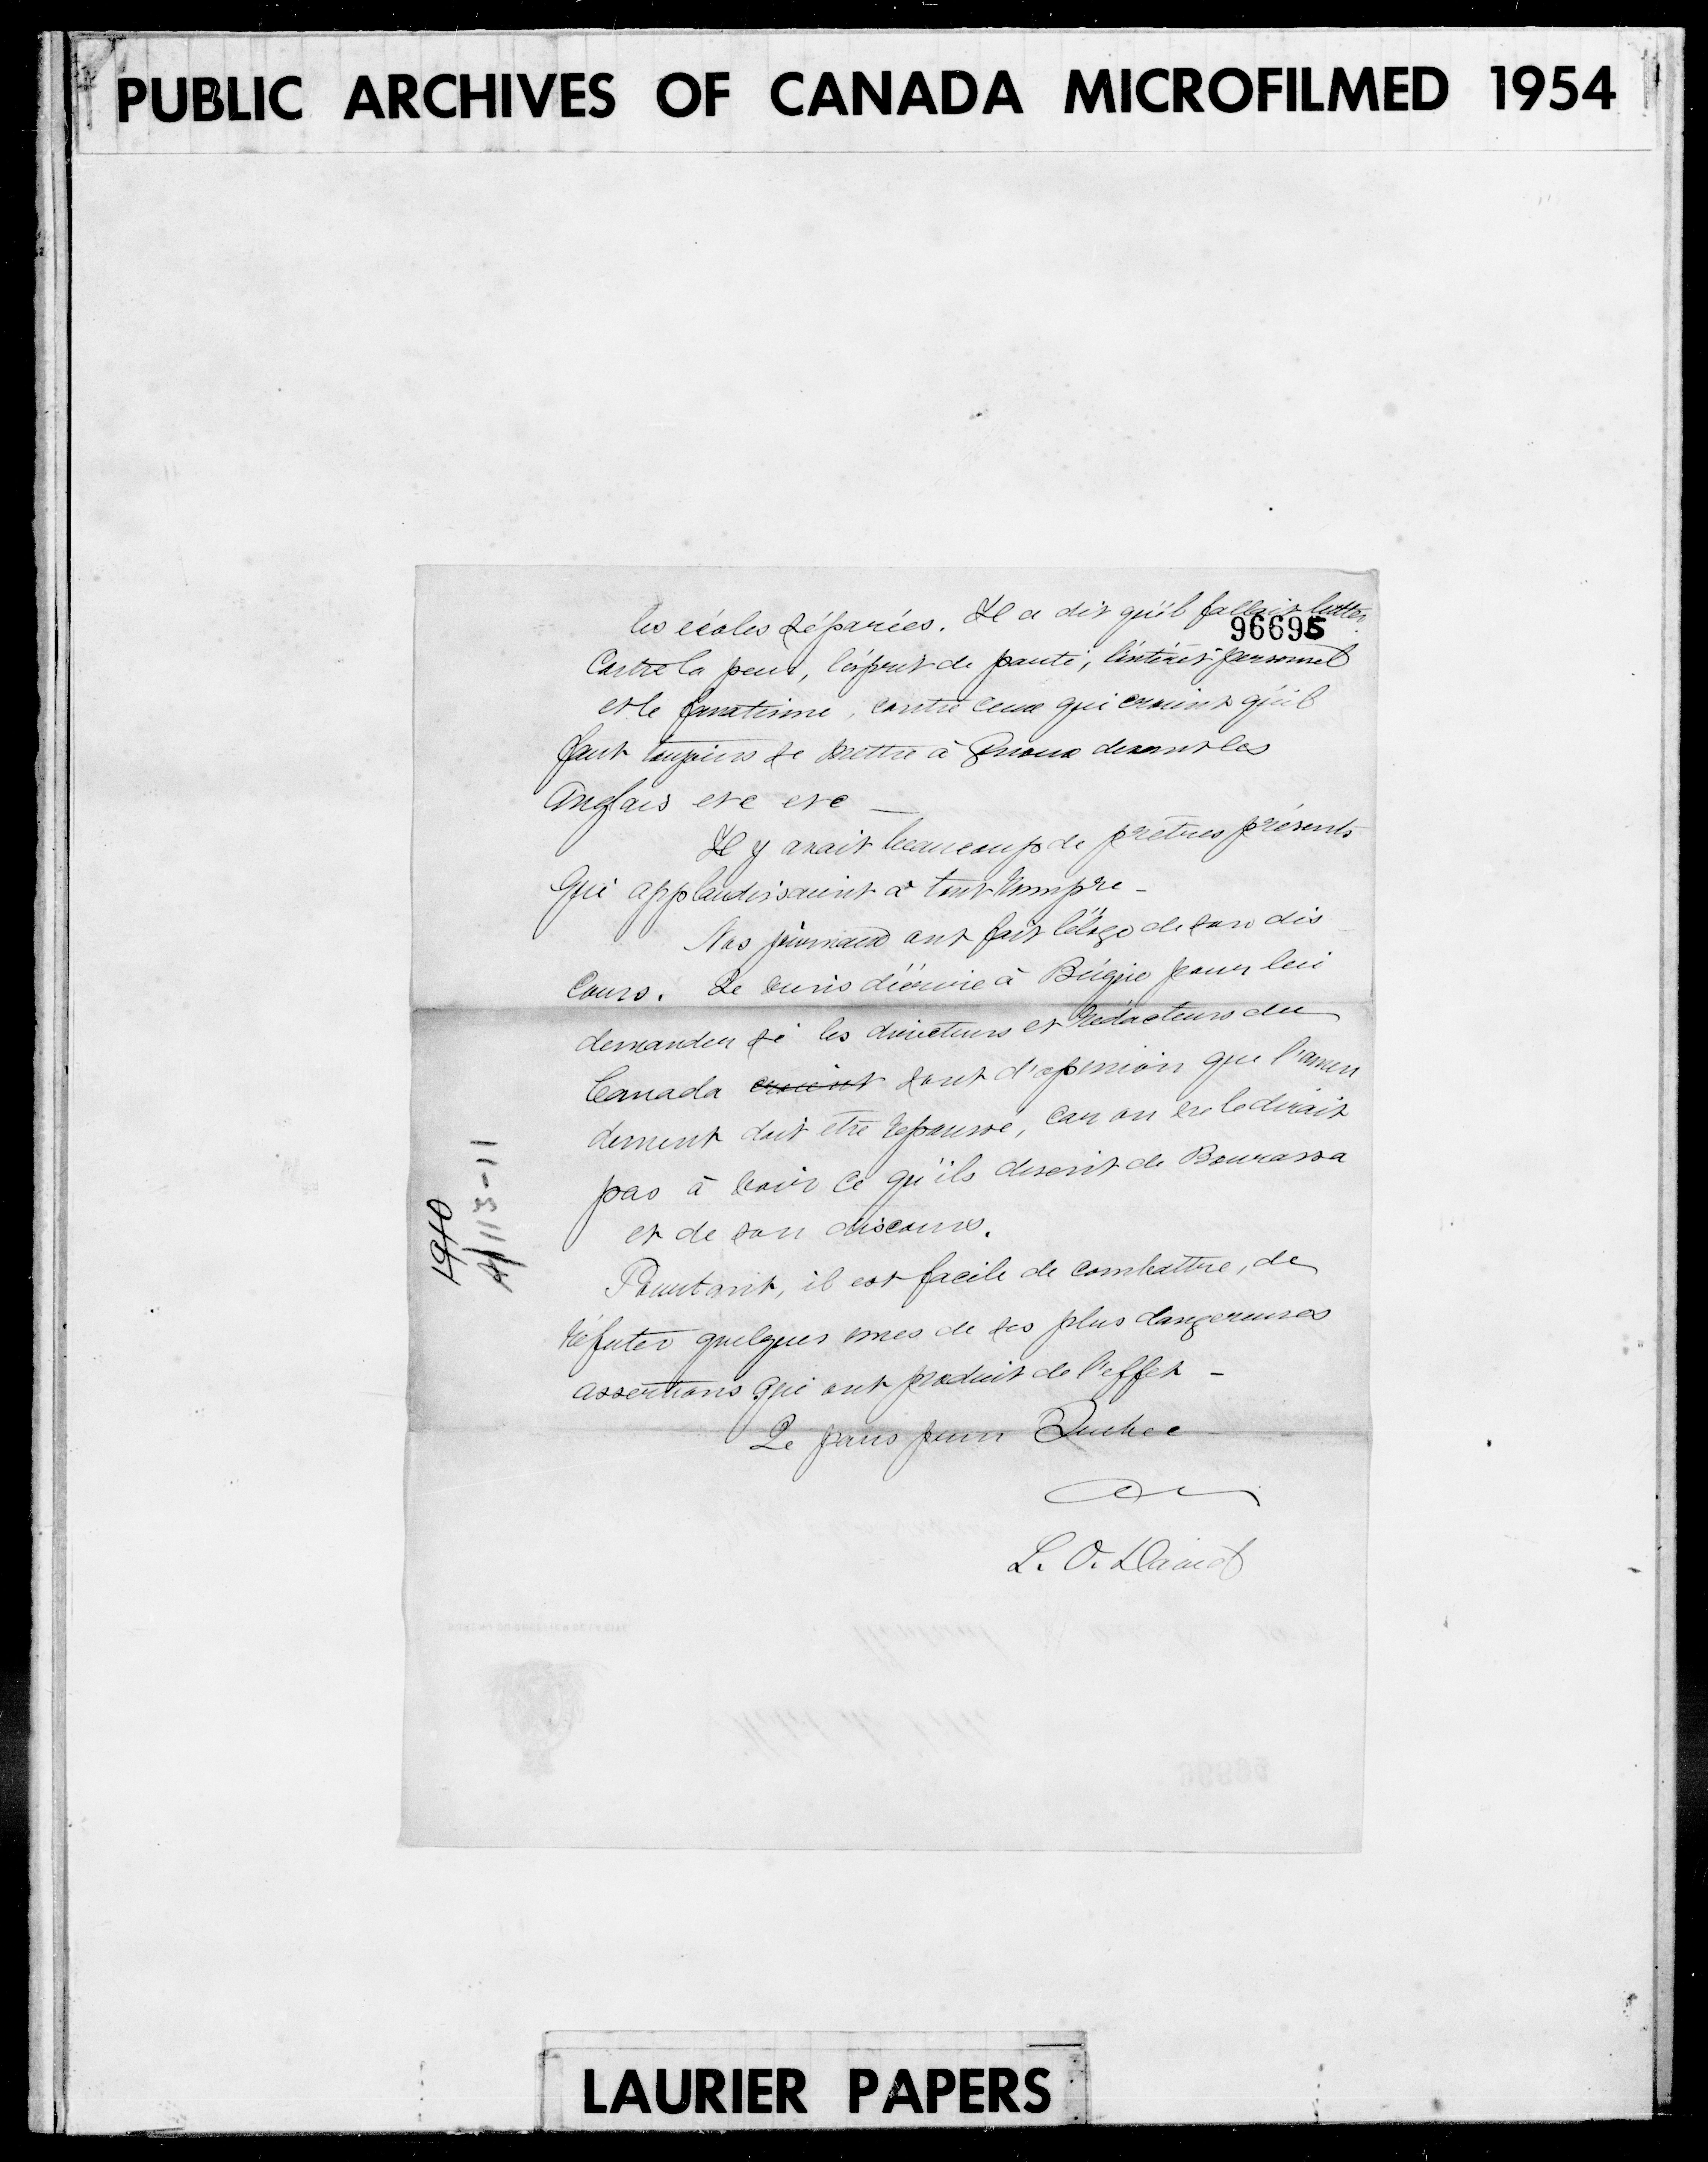 PUBLIC ARCHIVES OF CANADA MICROFILMED 1954
les écoles séparées. Il a dit qu'il fallait lutter
96695
Contre la peur, l'esprit de parti, l'intérêt personnel
et le fanatisme, contre ceux qui croient qu'il
faut toujours se mettre à genoux devant les
Anglais etc etc —
Il y avait beaucoup de prêtres présents
qui applaudissaient à tout rompre —
Nos journaux ont fait l'éloge de son dis
cours. Je viens d'écrire à Béïque pour lui
demander si les directeurs et rédacteurs du
Canada croient sont d'opinion que l'amen
dement doit être repoussé, car on ne le dirait
pas à voir ce qu'ils disent de Bourassa
et de son discours.
Pourtant, il est facile de combattre, de
réfuter quelques unes de ses plus dangereuses
assertions qui ont produit de l'effet —
Je pars pour Quebec
L. O. David
1910
A/113-11
LAURIER PAPERS